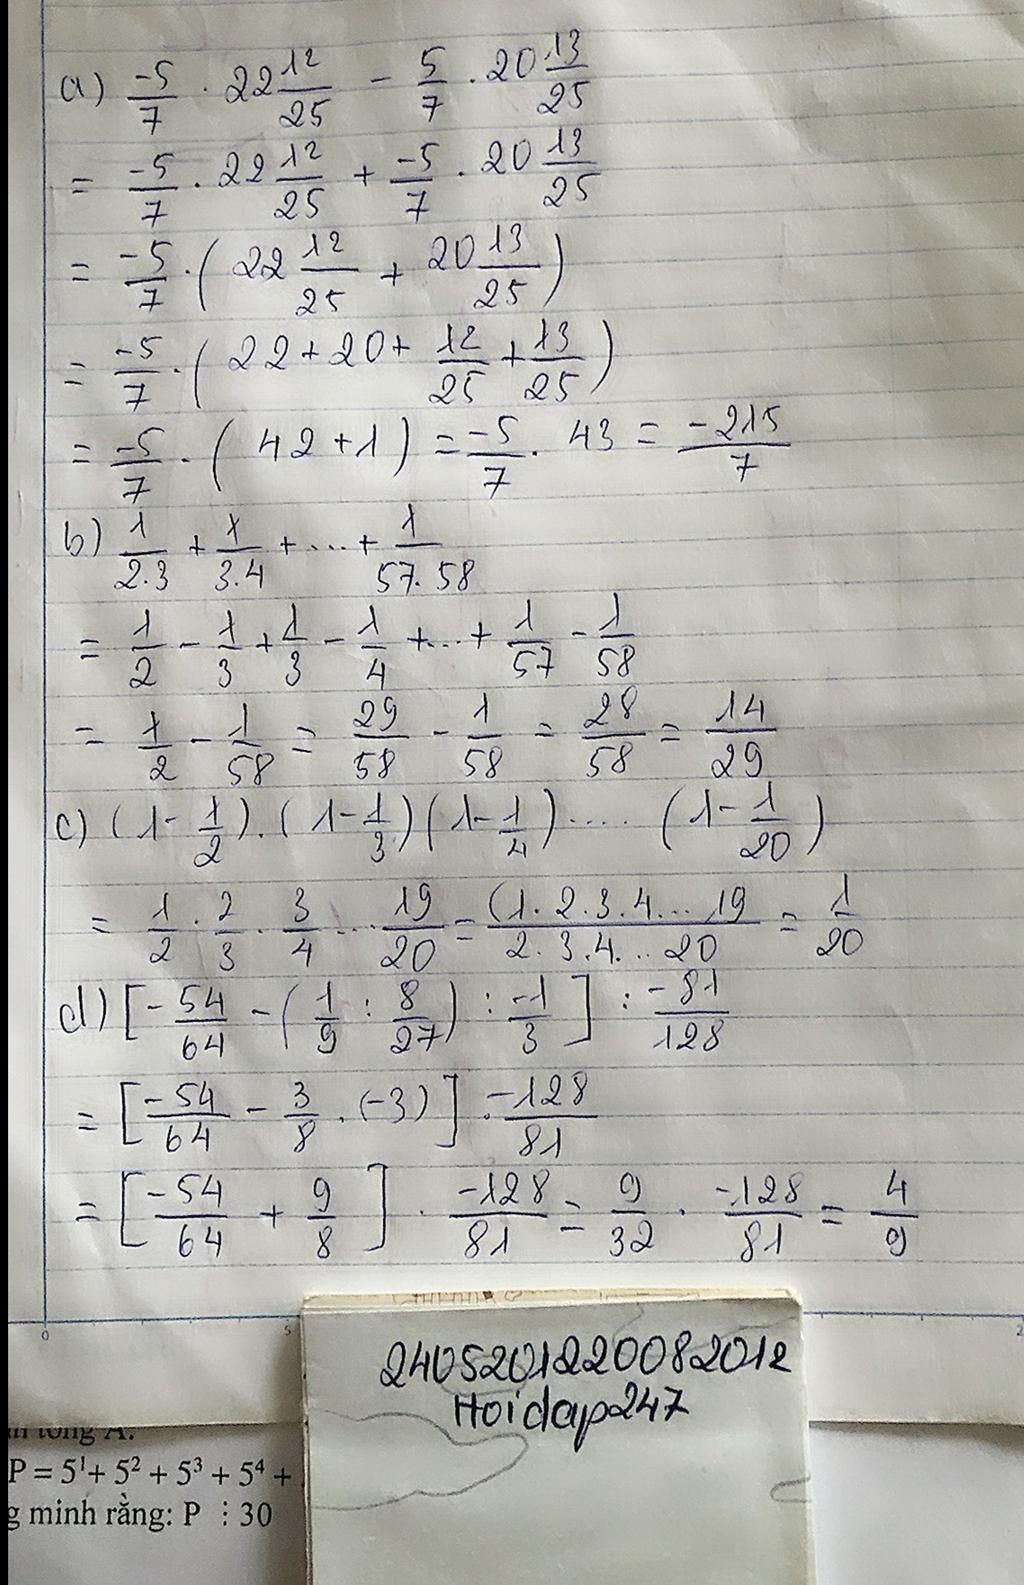 a) -5/7 . 22 12/25 - 5/7 . 20 13/25
= -5/7 . 22 12/25 + -5/7 . 20 13/25
= -5/7 . ( 22 12/25 + 20 13/25 )
= -5/7 . ( 22+20+ 12/25 + 13/25 )
= -5/7 . ( 42+1 ) = -5/7 . 43 = -215/7
b) 1/2.3 + 1/3.4 + ... + 1/57.58
= 1/2 - 1/3 + 1/3 - 1/4 + ... + 1/57 - 1/58
= 1/2 - 1/58 = 29/58 - 1/58 = 28/58 = 14/29
c) (1- 1/2) . (1- 1/3)(1- 1/4) .... (1- 1/20)
= 1/2 . 2/3 . 3/4 ... 19/20 = (1.2.3.4...19/2.3.4...20 = 1/20
d) [- 54/64 - (1/9 : 8/27) : -1/3 ] : -81/128
= [ -54/64 - 3/8 . (-3) ] . -128/81
= [ -54/64 + 9/8 ] . -128/81 = 9/32 . -128/81 = 4/9
0 5
2405201220082012
Hoidap247
tổng A.
P = 5¹+ 5² + 5³ + 5⁴ +
minh rằng: P ⋮ 30